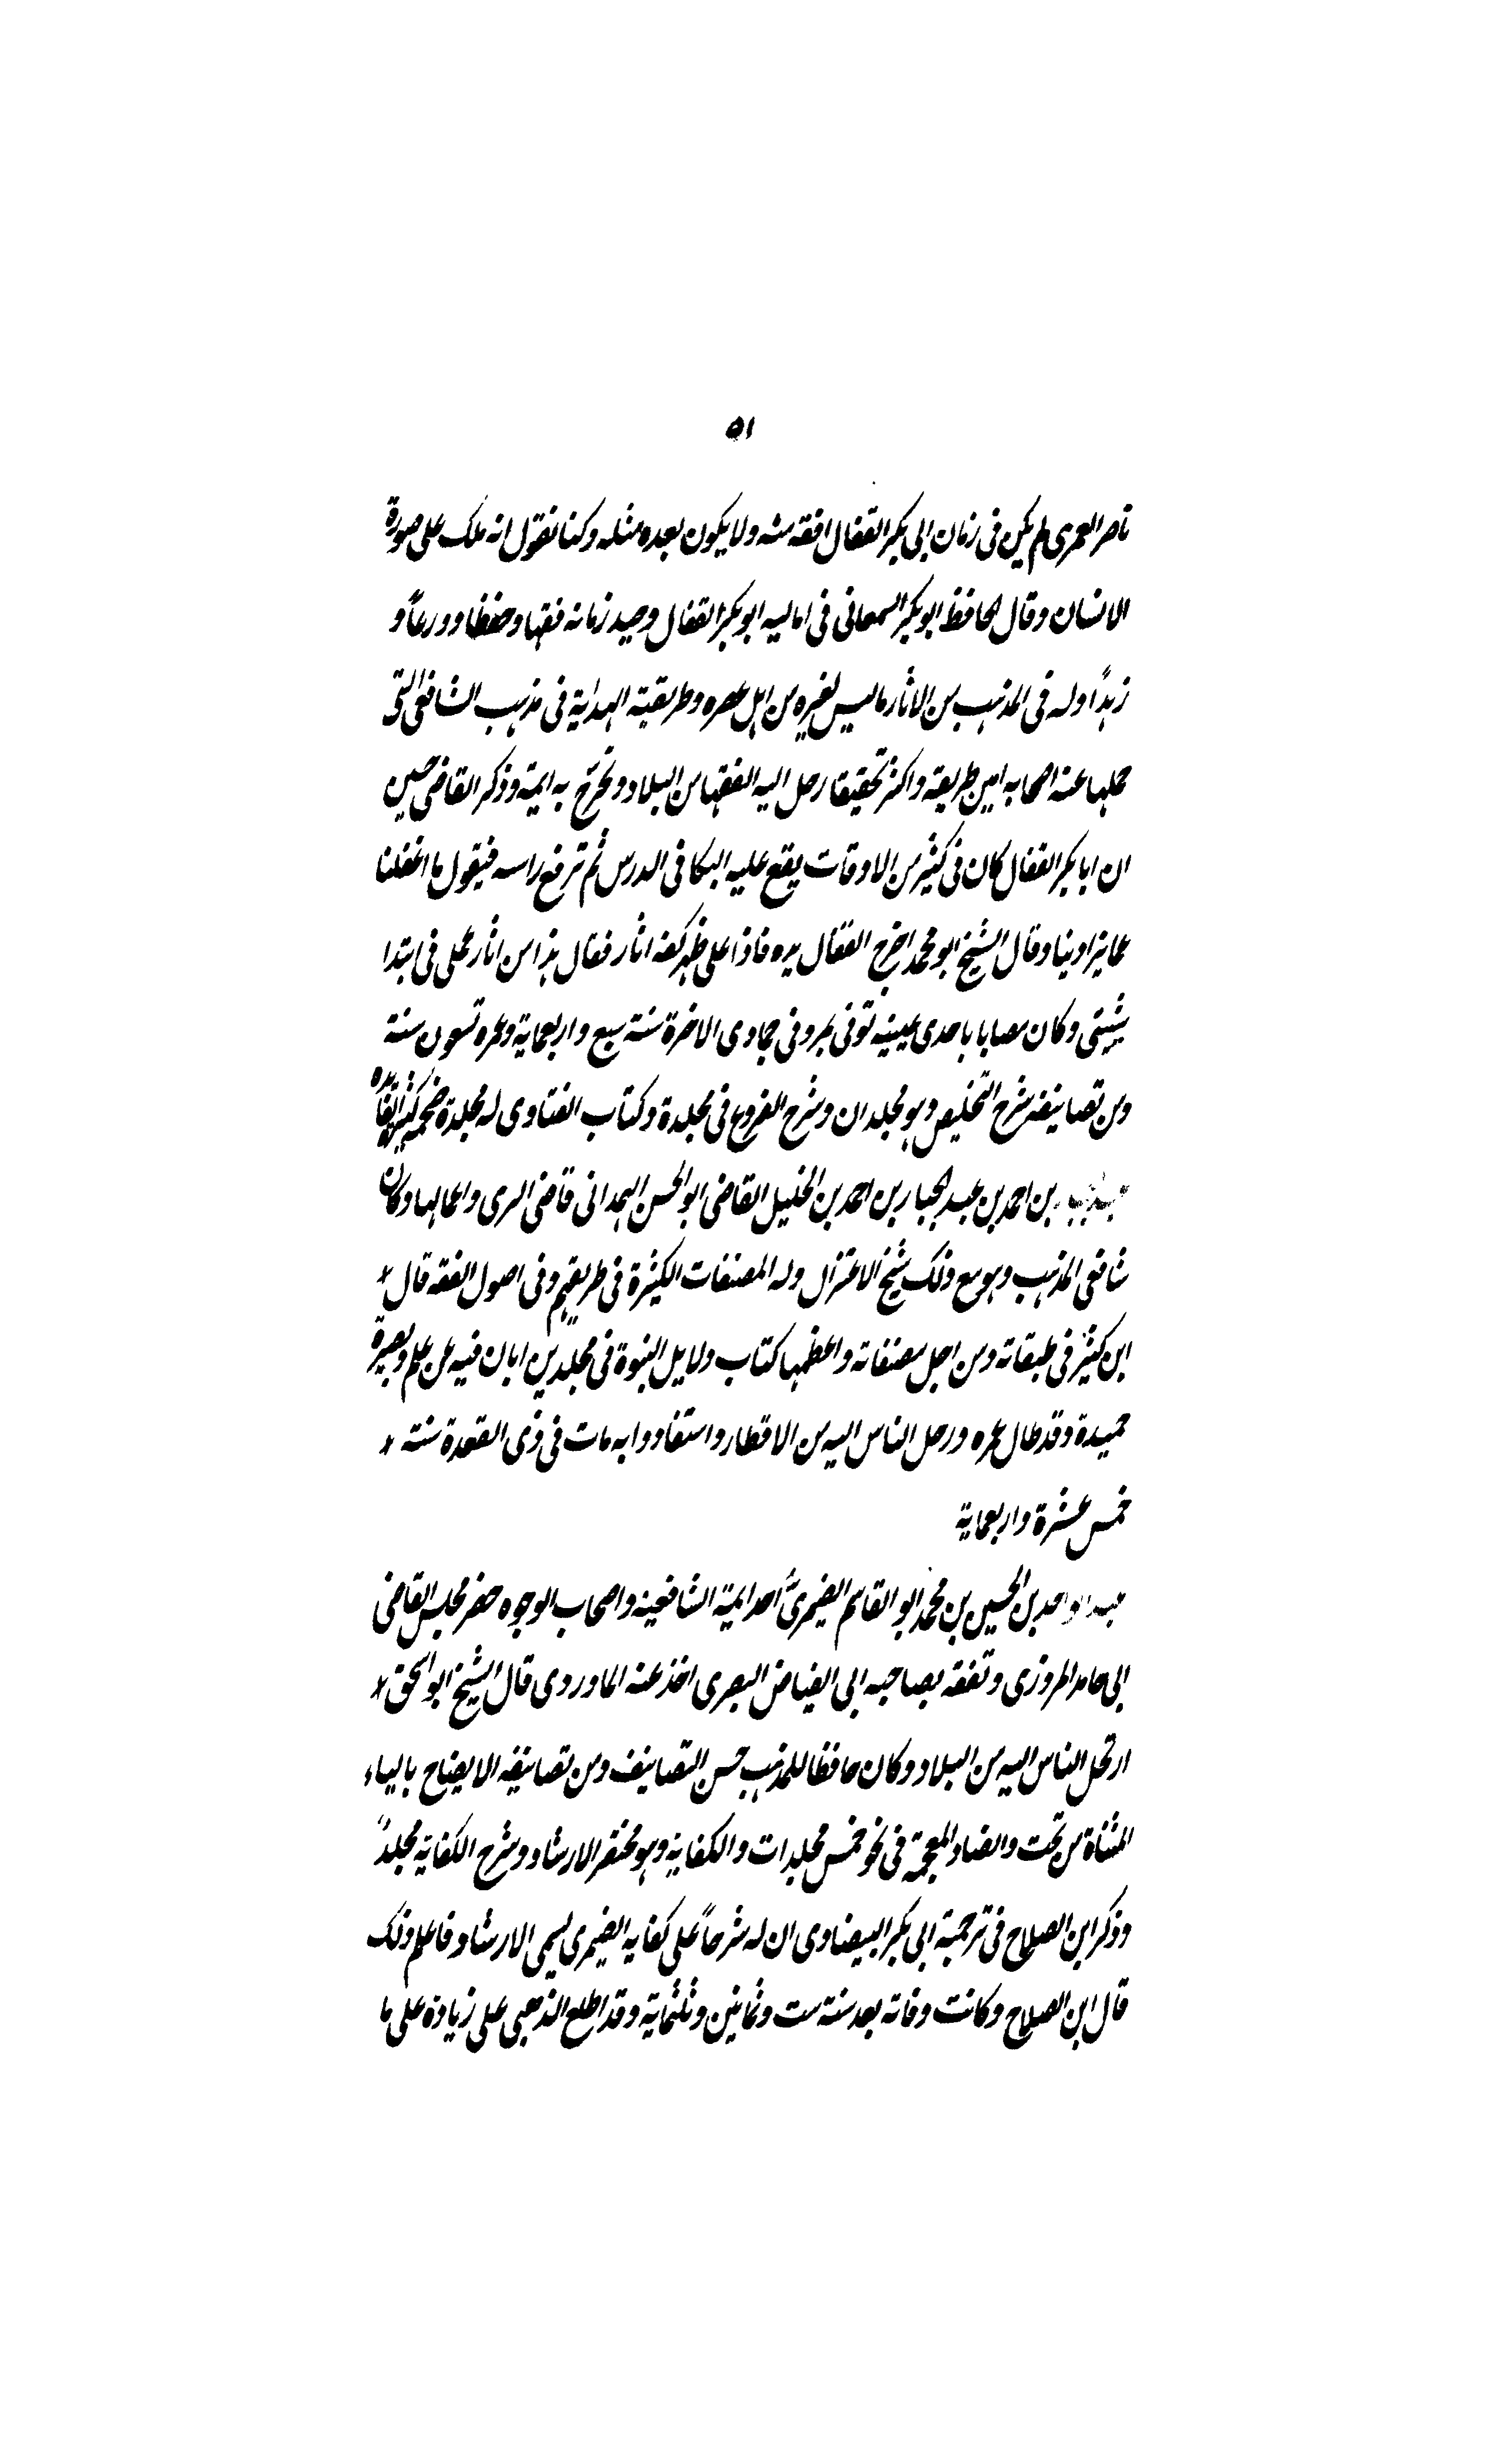 ٥١
ناصر العمرى لم يكن فى زمان ابى بكر القفال افقه منه ولا يكون بعده مثله وكنا نقول انه ملك على صورة
الانسان وقال الحافظ ابو بكر السمعانى فى اماليه ابو بكر القفال وحيد زمانه فقها وحفظا وورعاً و
زهداً وله فى المذهب من الاثار ماليس لغيره من اهل عصره وطريقته الهداية فى مذهب الشافعى التى
حملها عنه اصحابه امين طريقه واكثر تحقيقا رحل اليه الفقها من البلاد وتخرج به ايمة وذكر القاضى حسين
ان ابا بكر القفال كان فى كثير من الاوقات يقع عليه البكا فى الدرس ثم ترفع راسه فيقول ما اغفلنا
عمايراد بنا وقال الشيخ ابو محمد اخرج القفال يده فاذا على ظهر كفه اثار فقال هذا من اثار عملى فى ابتدا
شيبتى وكان مصابا باحدى عينيه توفى بمرو فى جمادى الاخرة سنة سبع واربعماية وعمره تسعون سنة
ومن تصانيفه شرح التلخيص وهو مجلدان وشرح الفروع فى مجلدة وكتاب الفتاوى له مجلدة ضخمة كثيرة الفائدة
بن احمد بن عبد الجبار بن احمد بن الخليل القاضى ابو الحسن الهمدانى قاضى الرى واعمالها وكان
شافعى المذهب وهو مع ذلك شيخ الاعتزال وله المصنفات الكثيرة فى طريقهم وفى اصول الفقه قال *
ابن كثير فى طبقاته ومن اجل مصنفاته واعظمها كتاب دلايل النبوة فى مجلدين ابان فيه عن علم وبصيرة
حميدة وقد طال عمره ورحل الناس اليه من الاقطار واستفادوا به مات فى ذى القعدة سنة *
خمس عشرة واربعماية
عبد الواحد بن الحسين بن محمد ابو القاسم الضيمرىّ احد ايمة الشافعية واصحاب الوجوه حضر مجلس القاضى
ابى حامد المروزى وتفقه بصاحبه ابى الفياض البصرى اخذ عنه الماوردى قال الشيخ ابو اسحق *
ارتحل الناس اليه من البلاد وكان حافظا للمذهب حسن التصانيف ومن تصانيفه الايضاح بالياء
المثناة من تحت والضاد المعجمة فى نحو خمس مجلدات والكفاية وهو مختصر الارشاد وشرح الكفاية مجلد
وذكر ابن الصلاح فى ترجمة ابى بكر البيضاوى ان له شرحاً على كفاية الضيمرى يسمى الارشاد فاعلم ذلك
قال ابن الصلاح وكانت وفاته بعد سنة ست وثمانين وثلثماية وقد اطلع الذهبى على زيادة على ما